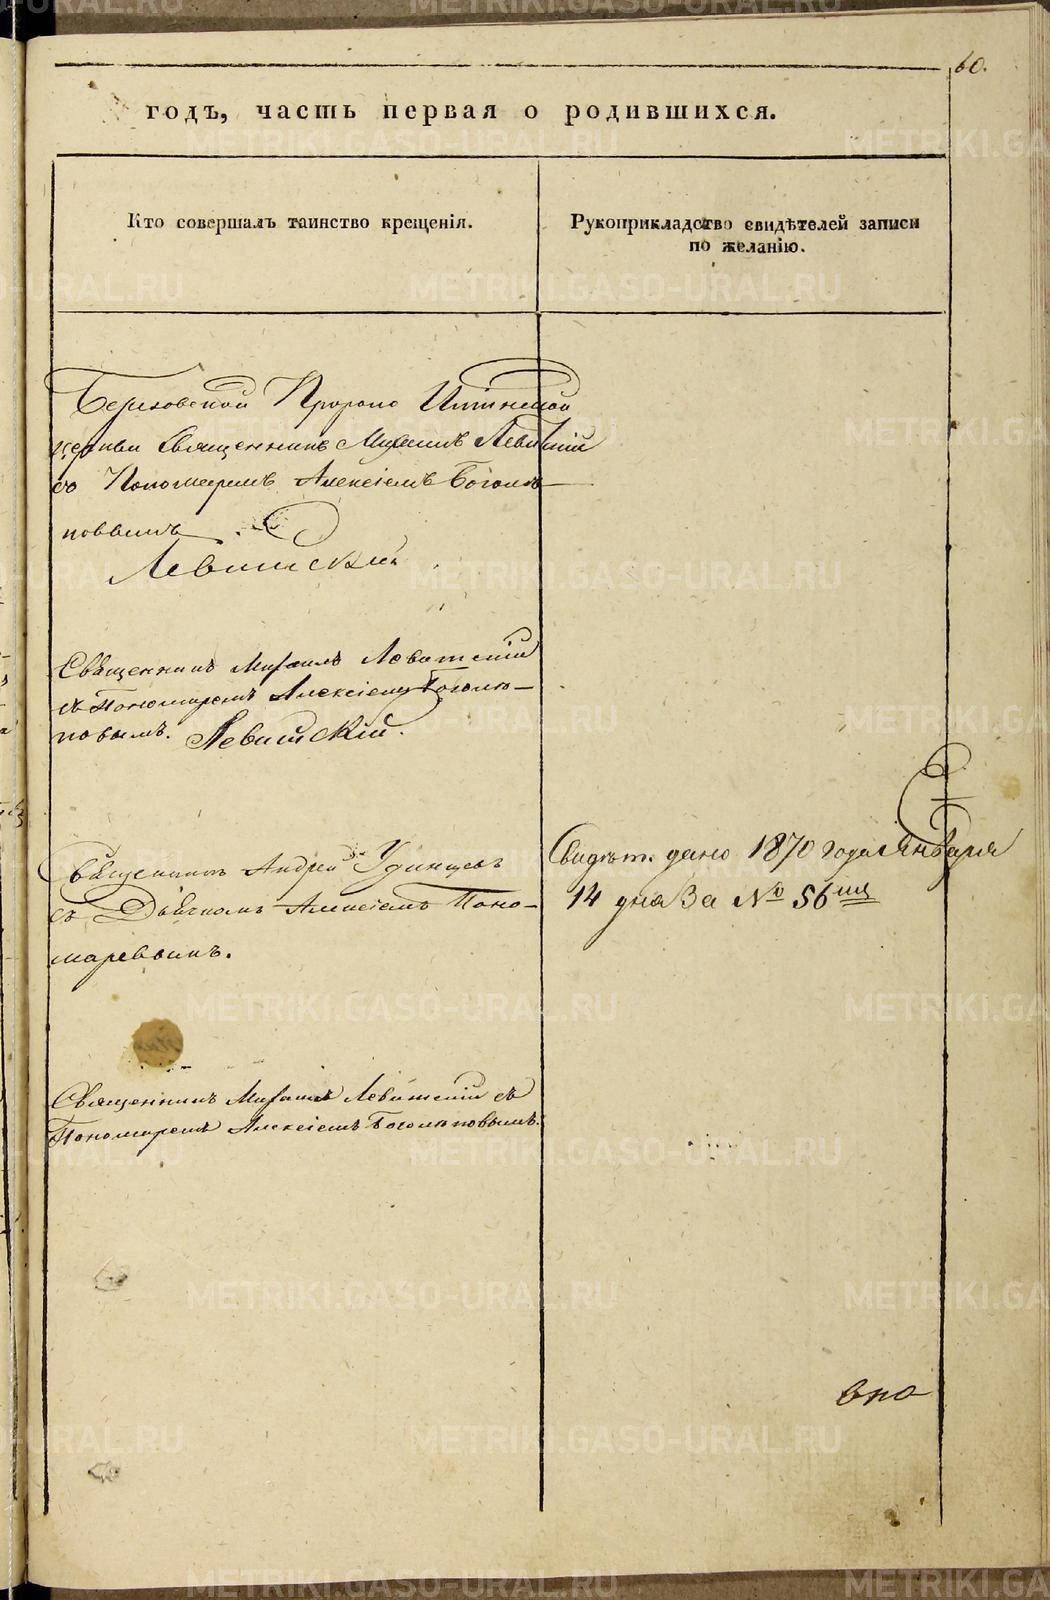 60.
годъ, часть первая о родившихся.
Кто совершалъ таинство крещенія.
Рукоприкладство свидѣтелей записи
по желанію.
Березовской Пророко Илiинской
церкви Священникъ Михаилъ Левитскiй
со Пономаремъ Алексiемъ Боголю-
повымъ.
Левитскiй
Священникъ Михаилъ Левитскiй
съ Пономаремъ Алексiемъ Боголю-
повымъ. Левитскiй.
Священникъ Андрей Удинцевъ
съ Дьячкомъ Алексiемъ Поно-
маревымъ.
Свидѣт. дано 1870 года Января
14 дня За № 56
Священникъ Михаилъ Левитскiй съ
Пономаремъ Алексiемъ Боголюповымъ.
METRIKI.GASO-URAL.RU